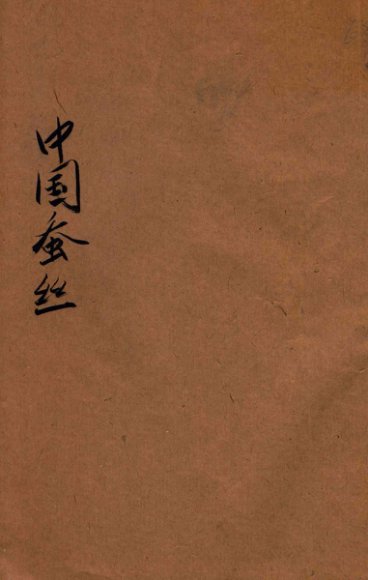 中国蚕丝